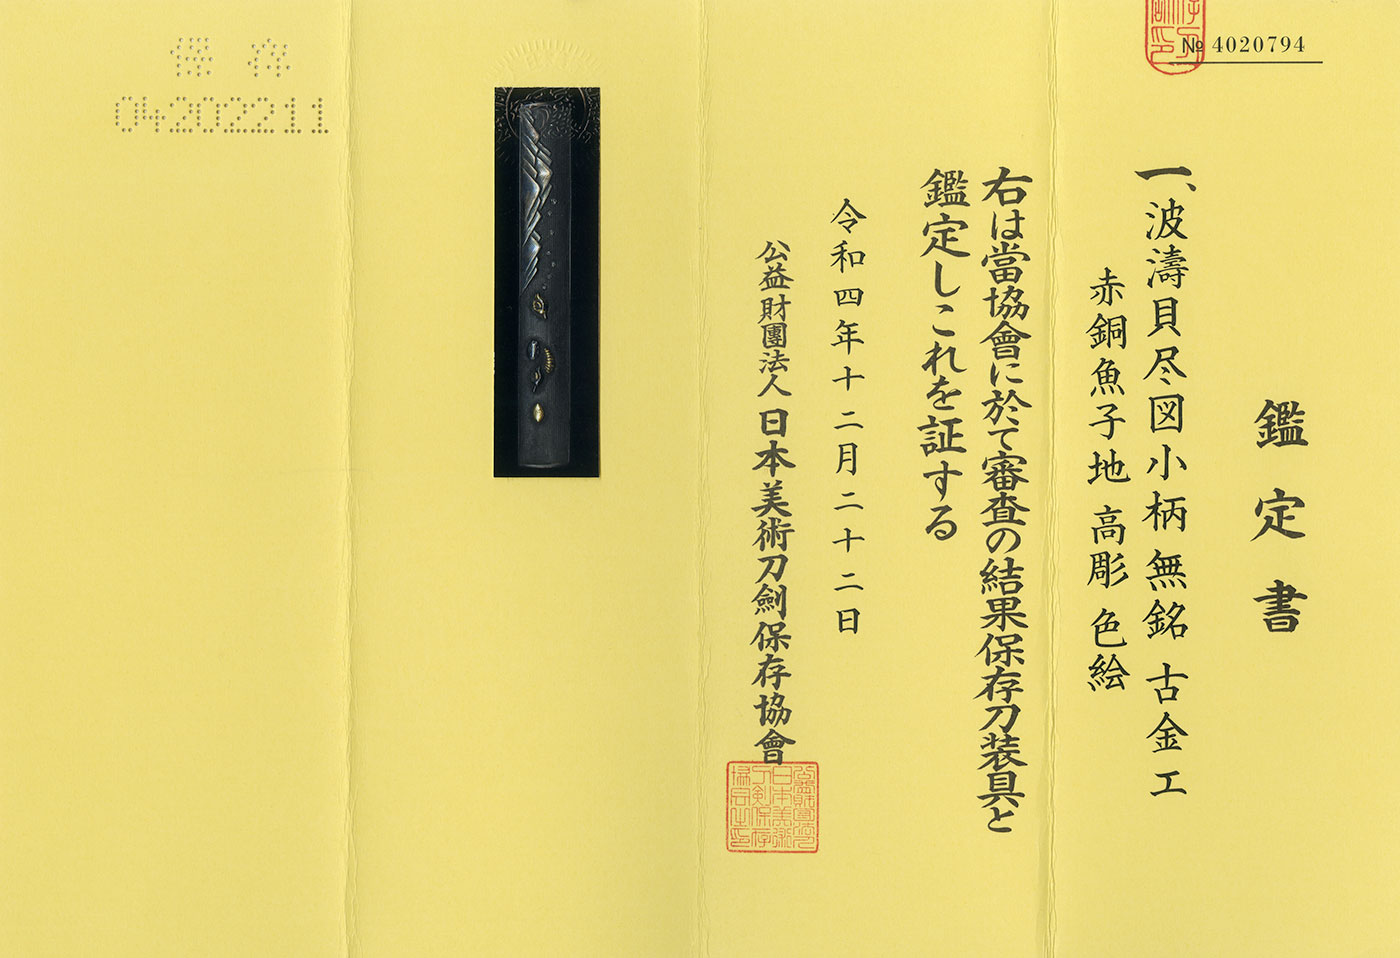 № 4020794
鑑定書
一、波濤貝尽図小柄 無銘 古金工
赤銅魚子地 高彫 色絵
右は當協會に於て審査の結果保存刀装具と
鑑定しこれを証する
令和四年十二月二十二日
公益財團法人 日本美術刀劍保存協會
保存
04202211